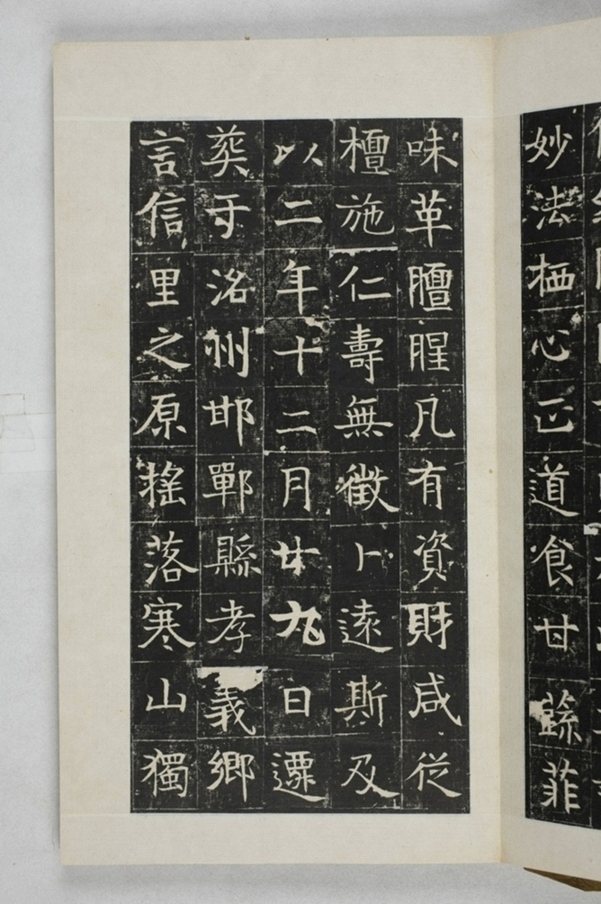 妙法栖心正道食甘蔬菲
味革膻腥凡有資財咸從
檀施仁壽無徵卜遠斯及
以二年十二月廿九日遷
葬于洺州邯鄲縣孝義鄉
言信里之原搖落寒山獨